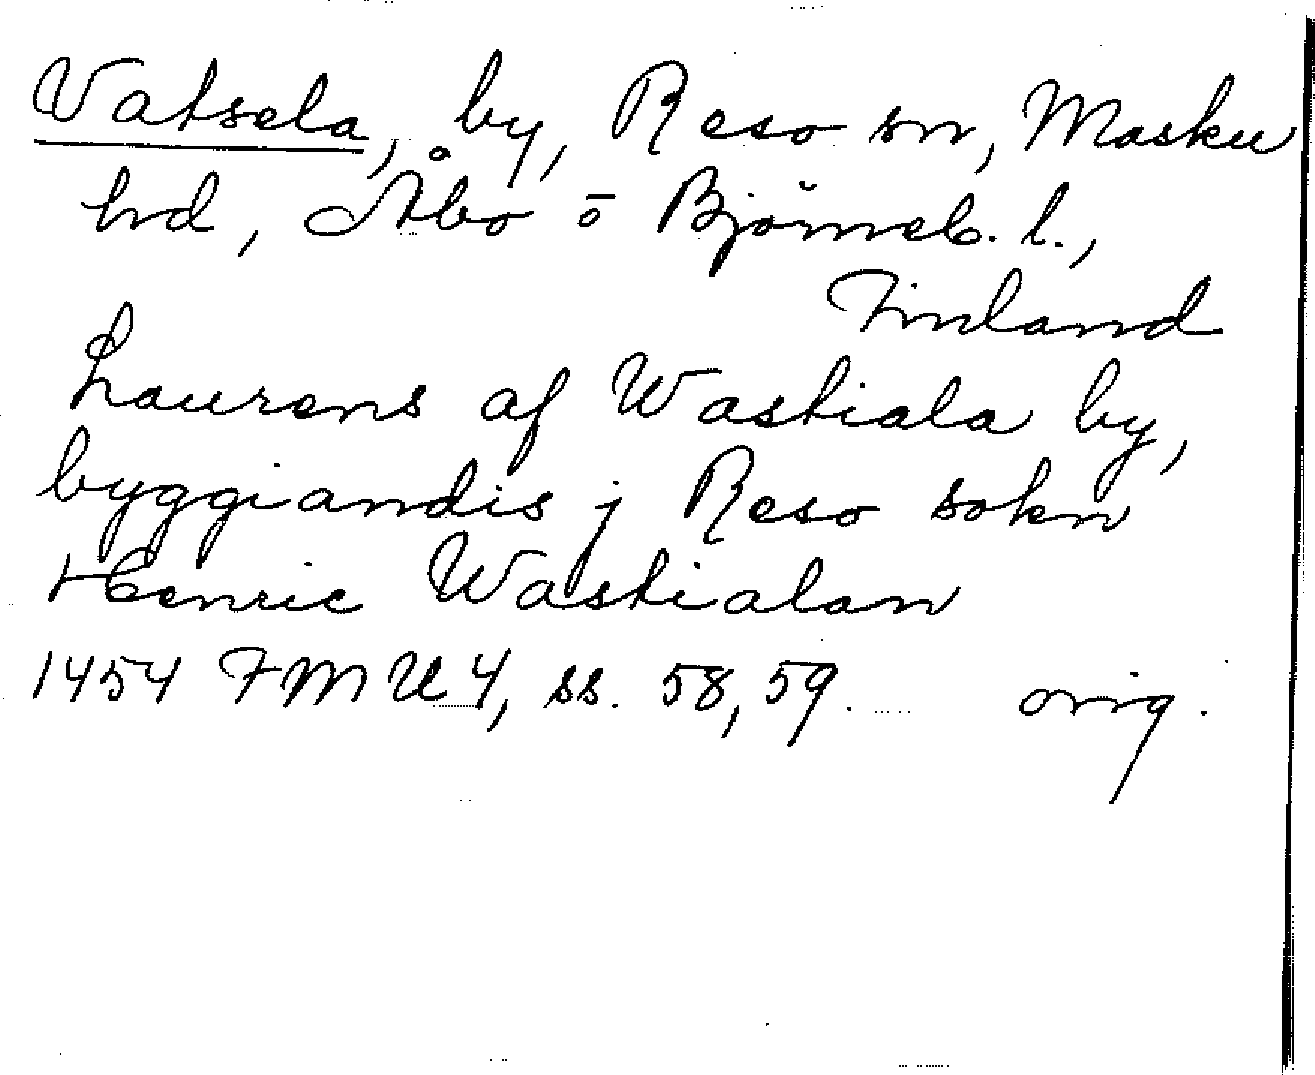 Vatsela, by, Reso sn, Masku
hd, Åbo o Björneb. l.,
Finland
Laurens af Wastiala by,
byggiandis j Reso sokn
Henric Wastialan
1454 FMU 4, ss. 58, 59. orig.